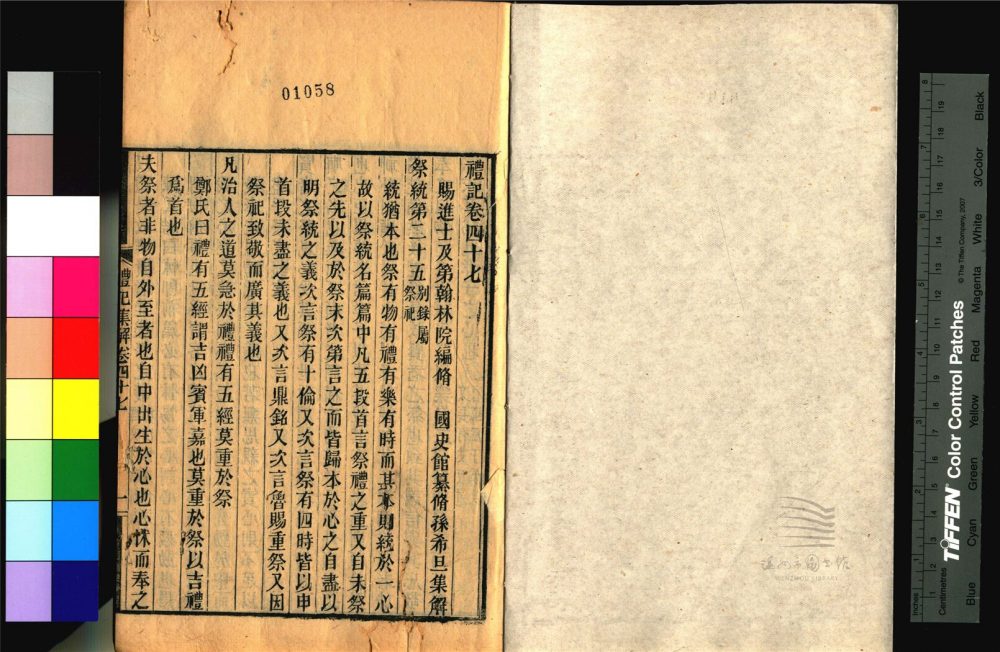 01058
禮記卷四十七
賜進士及第翰林院編脩 國史館纂脩孫希旦集解
祭統第二十五 別錄屬祭祀
統猶本也祭有物有禮有樂有時而其本則統於一心
故以祭統名篇篇中凡五段首言祭禮之重又自未祭
之先以及於祭末次第言之而皆歸本於心之自盡以
明祭統之義次言祭有十倫又次言祭有四時皆以申
首段未盡之義也又次言鼎銘又次言魯賜重祭又因
祭祀致敬而廣其義也
凡治人之道莫急於禮禮有五經莫重於祭
鄭氏曰禮有五經謂吉凶賓軍嘉也莫重於祭以吉禮
爲首也
夫祭者非物自外至者也自中出生於心也心怵而奉之
禮記集解卷四十七
一
溫州市圖書館
WENZHOU LIBRARY
TIFFEN Color Control Patches
© The Tiffen Company, 2007
Inches
Centimetres
Blue
Cyan
Green
Yellow
Red
Magenta
White
3/Color
Black